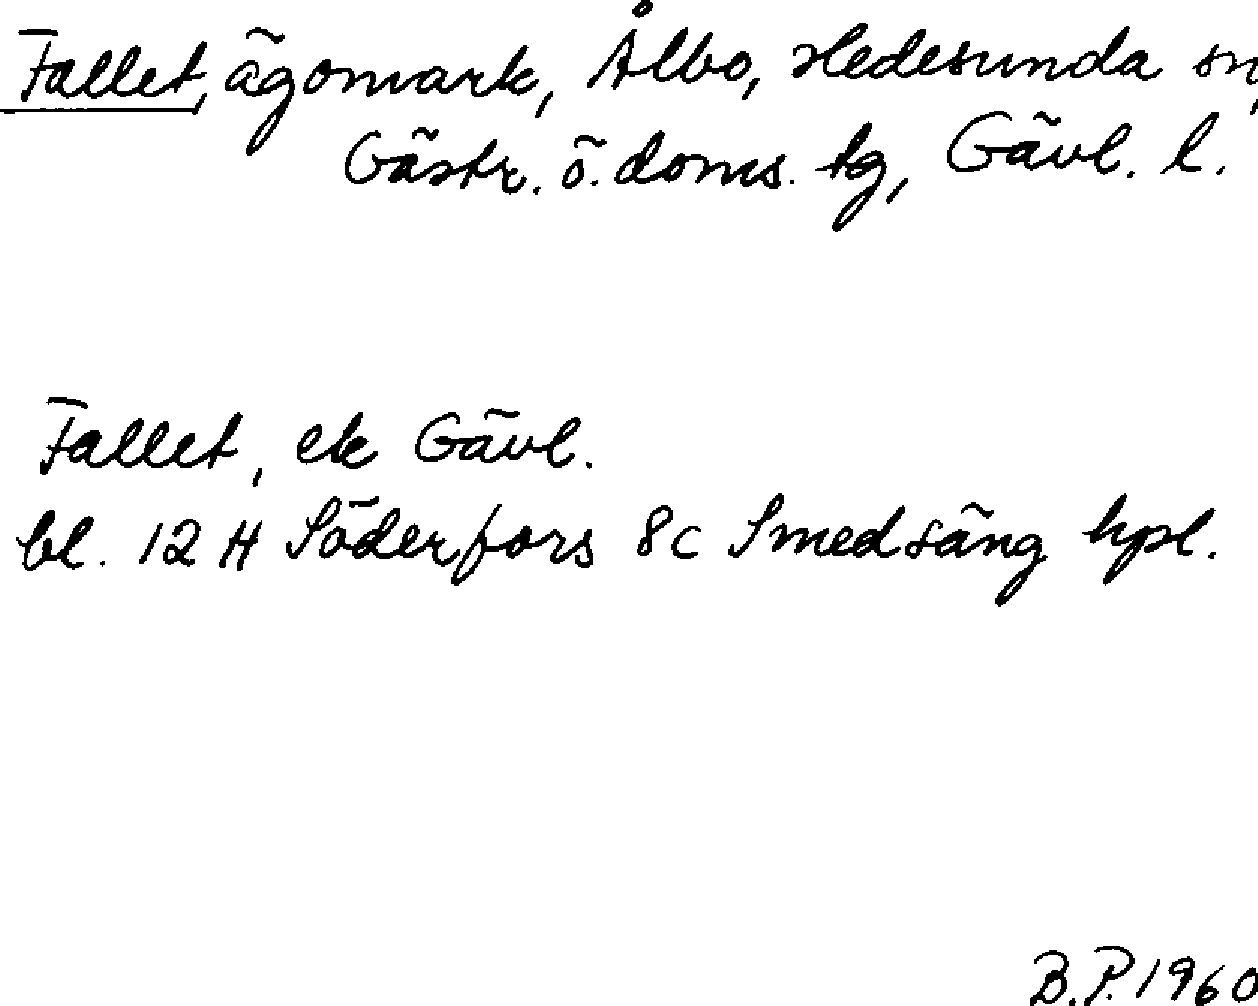 Fallet, ägomark, Ålbo, Hedesunda sn,
Gästr. ö. doms. tg, Gävl. l.
Fallet, ek Gävl.
bl. 12 H Söderfors 8c Smedsäng hpl.
B.P. 1960